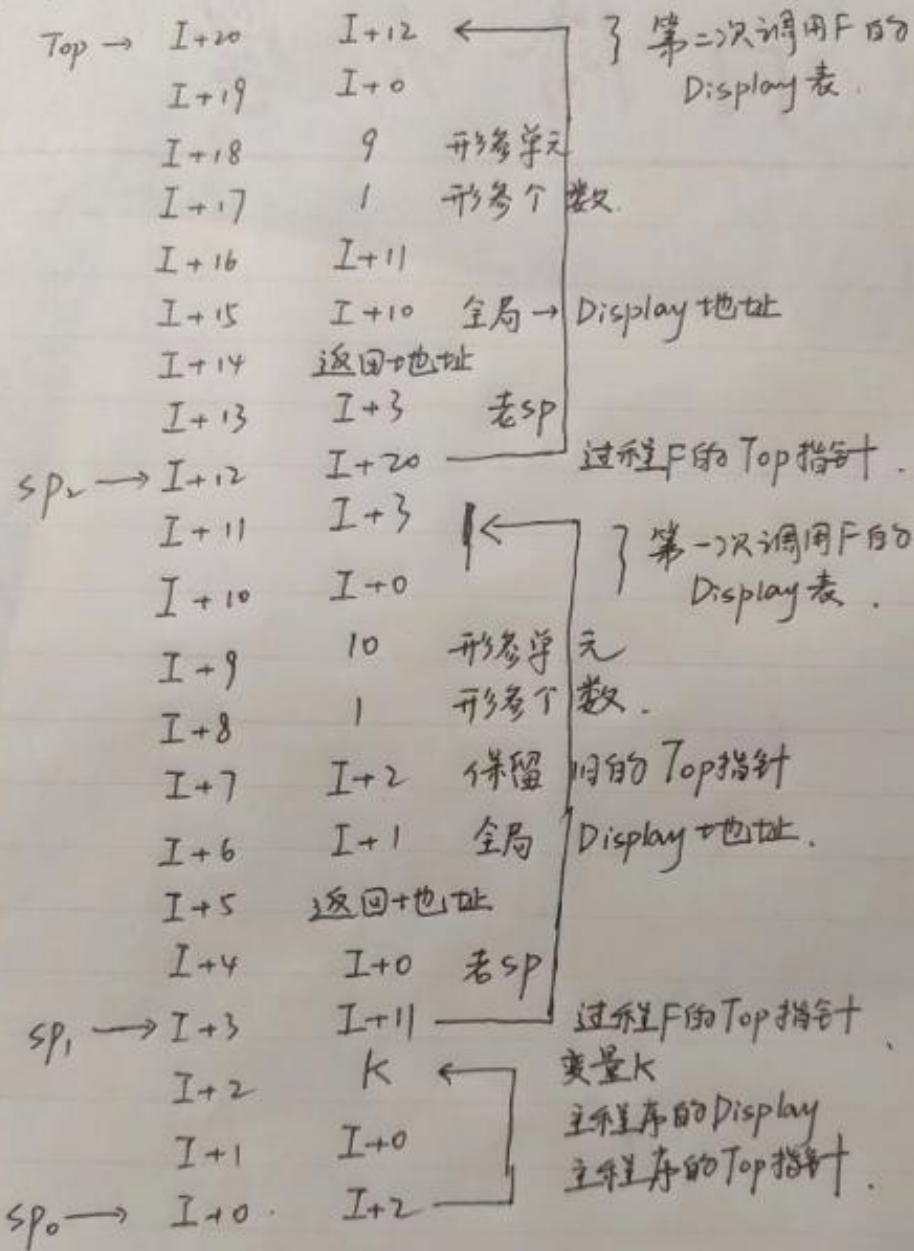 Top → I+20 I+12 ← } 第二次调用F的
I+19 I+0 Display表.
I+18 9 形参单元
I+17 1 形参个数.
I+16 I+11
I+15 I+10 全局→Display地址
I+14 返回地址
I+13 I+3 老sp
sp₂ → I+12 I+20 过程F的Top指针.
I+11 I+3 ← } 第一次调用F的
I+10 I+0 Display表.
I+9 10 形参单元
I+8 1 形参个数.
I+7 I+2 保留旧的Top指针
I+6 I+1 全局Display地址.
I+5 返回地址
I+4 I+0 老sp
sp₁ → I+3 I+11 过程F的Top指针.
I+2 K ← 变量K
I+1 I+0 主程序的Display
sp₀ → I+0 I+2 主程序的Top指针.